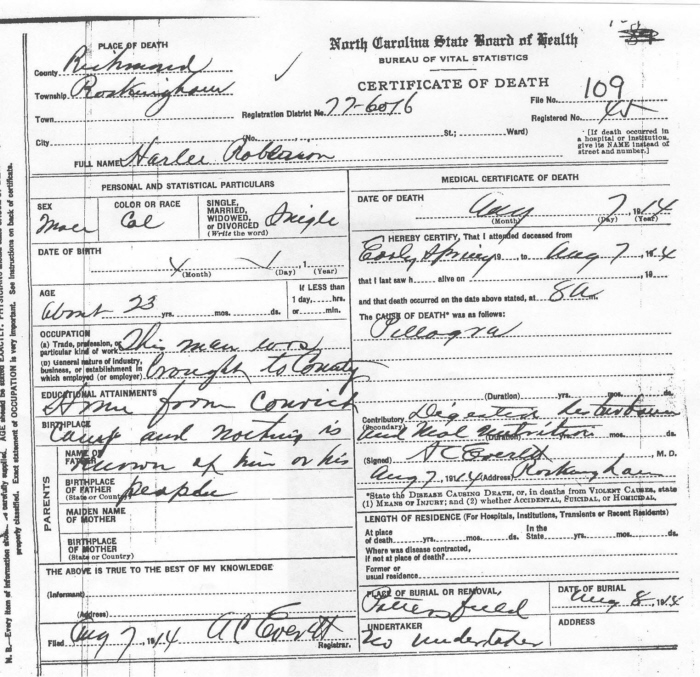 PLACE OF DEATH
County Richmond
Township Rockingham
Town
City
North Carolina State Board of Health
BUREAU OF VITAL STATISTICS
CERTIFICATE OF DEATH
Registration District No. 77-6076
File No. 109
Registered No. 45
(No. St.; Ward)
[If death occurred in
a hospital or institution,
give its NAME instead of
street and number.]
FULL NAME Harlee Roberson
PERSONAL AND STATISTICAL PARTICULARS
SEX
Male
COLOR OR RACE
Col
SINGLE,
MARRIED,
WIDOWED,
OR DIVORCED
(Write the word)
Single
DATE OF BIRTH
(Month) (Day) , 1 (Year)
AGE
about 23 yrs. mos. ds.
If LESS than
1 day, hrs.
or min.
OCCUPATION
(a) Trade, profession, or
particular kind of work This man was
(b) General nature of industry,
business, or establishment in
which employed (or employer) brought to County
EDUCATIONAL ATTAINMENTS
Home from Convict
BIRTHPLACE
Camp and nothing is
PARENTS
NAME OF
FATHER known of him or his
BIRTHPLACE
OF FATHER
(State or Country) people
MAIDEN NAME
OF MOTHER
BIRTHPLACE
OF MOTHER
(State or Country)
THE ABOVE IS TRUE TO THE BEST OF MY KNOWLEDGE
(Informant)
(Address)
Filed Aug 7, 1914 A C Everett
Registrar.
MEDICAL CERTIFICATE OF DEATH
DATE OF DEATH
Aug 7, 1914
(Month) (Day) (Year)
I HEREBY CERTIFY, That I attended deceased from
Early Spring, 19 , to Aug 7, 1914
that I last saw h alive on , 19
and that death occurred on the date above stated, at 8 a m.
The CAUSE OF DEATH* was as follows:
Pellagra
(Duration) yrs. mos. ds.
Contributory Digestive
(Secondary) and Mal Nutrition
(Duration) yrs. mos. ds.
(Signed) A C Everett M. D.
Aug 7, 1914 (Address) Rockingham
*State the DISEASE CAUSING DEATH, or, in deaths from VIOLENT CAUSES, state
(1) MEANS OF INJURY; and (2) whether ACCIDENTAL, SUICIDAL, or HOMICIDAL.
LENGTH OF RESIDENCE (For Hospitals, Institutions, Transients or Recent Residents)
At place
of death yrs. mos. ds.
In the
State yrs. mos. ds.
Where was disease contracted,
if not at place of death?
Former or
usual residence
PLACE OF BURIAL OR REMOVAL
Potters field
DATE OF BURIAL
Aug 8, 1914
UNDERTAKER
No Undertaker
ADDRESS
N. B.—Every item of information carefully supplied. AGE should be stated EXACTLY.
properly classified. Exact statement of OCCUPATION is very important. See instructions on back of certificate.